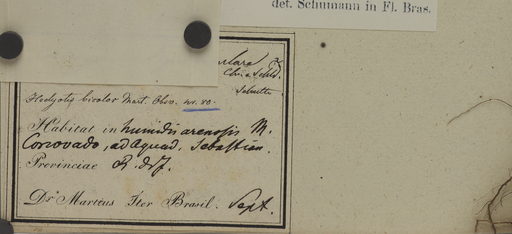 det. Schumann in Fl. Bras.
Cham. & Schld.
Hedyotis bicolor Mart. Obs. nr. 80.
Habitat in humidis arenosis M.
Corcovado, ad Aquad. Sebastian.
Provinciae R. d. J.
Dr. Martius Iter Brasil. Sept.